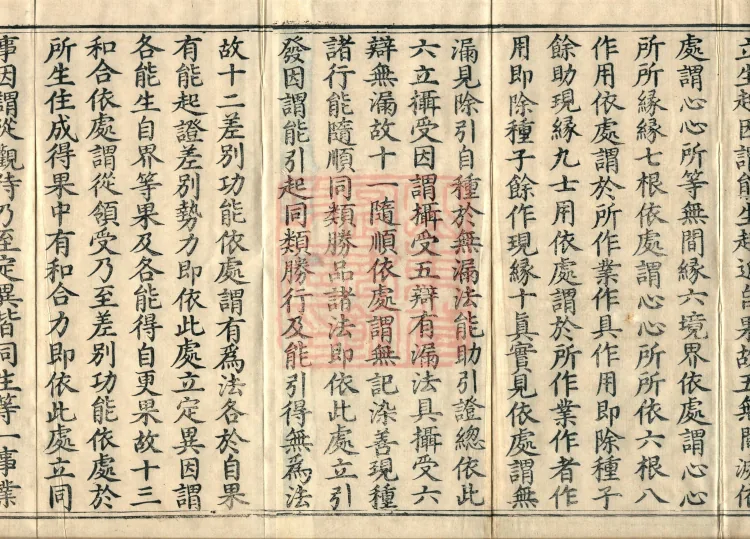 處謂心心所等無間縁六境界依處謂心心
所所縁縁七根依處謂心心所所依六根八
作用依處謂於所作業作具作用即除種子
餘助現縁九士用依處謂於所作業作者作
用即除種子餘作現縁十真實見依處謂無
漏見除引自種於無漏法能助引證總依此
六立攝受因謂攝受五辯有漏法具攝受六
辯無漏故十一隨順依處謂無記染善現種
諸行能隨順同類勝品諸法即依此處立引
發因謂能引起同類勝行及能引得無為法
故十二差別功能依處謂有為法各於自果
有能起證差別勢力即依此處立定異因謂
各能生自界等果及各能得自更果故十三
和合依處謂從領受乃至差別功能依處於
所生住成得果中有和合力即依此處立同
事因謂從觀待乃至定異皆同生等一事業